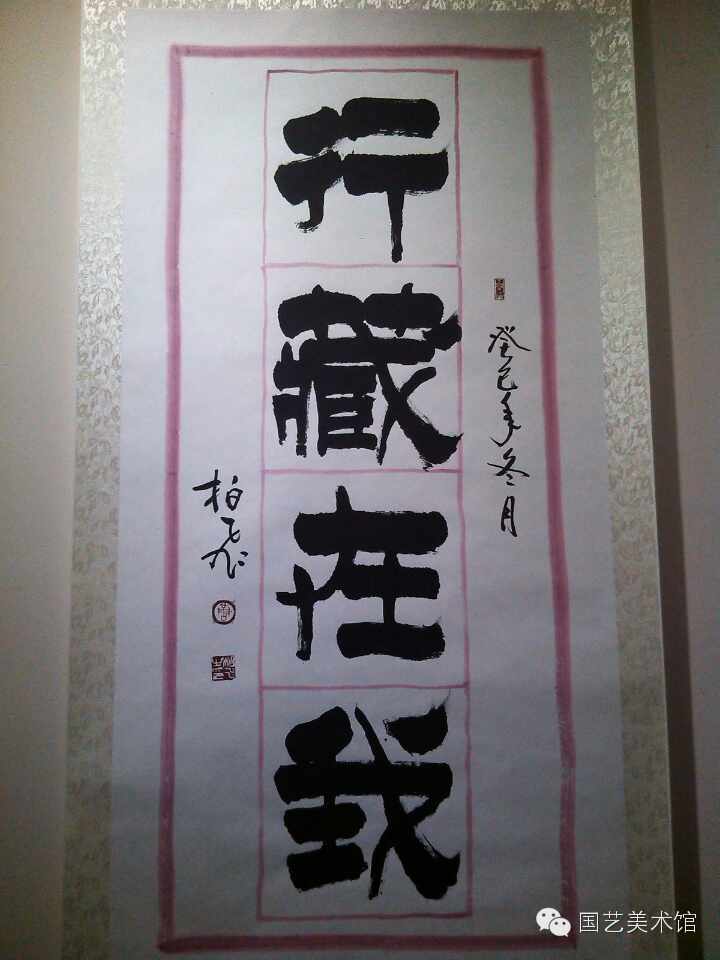 行藏在我
癸巳年冬月
柏飞
国艺美术馆